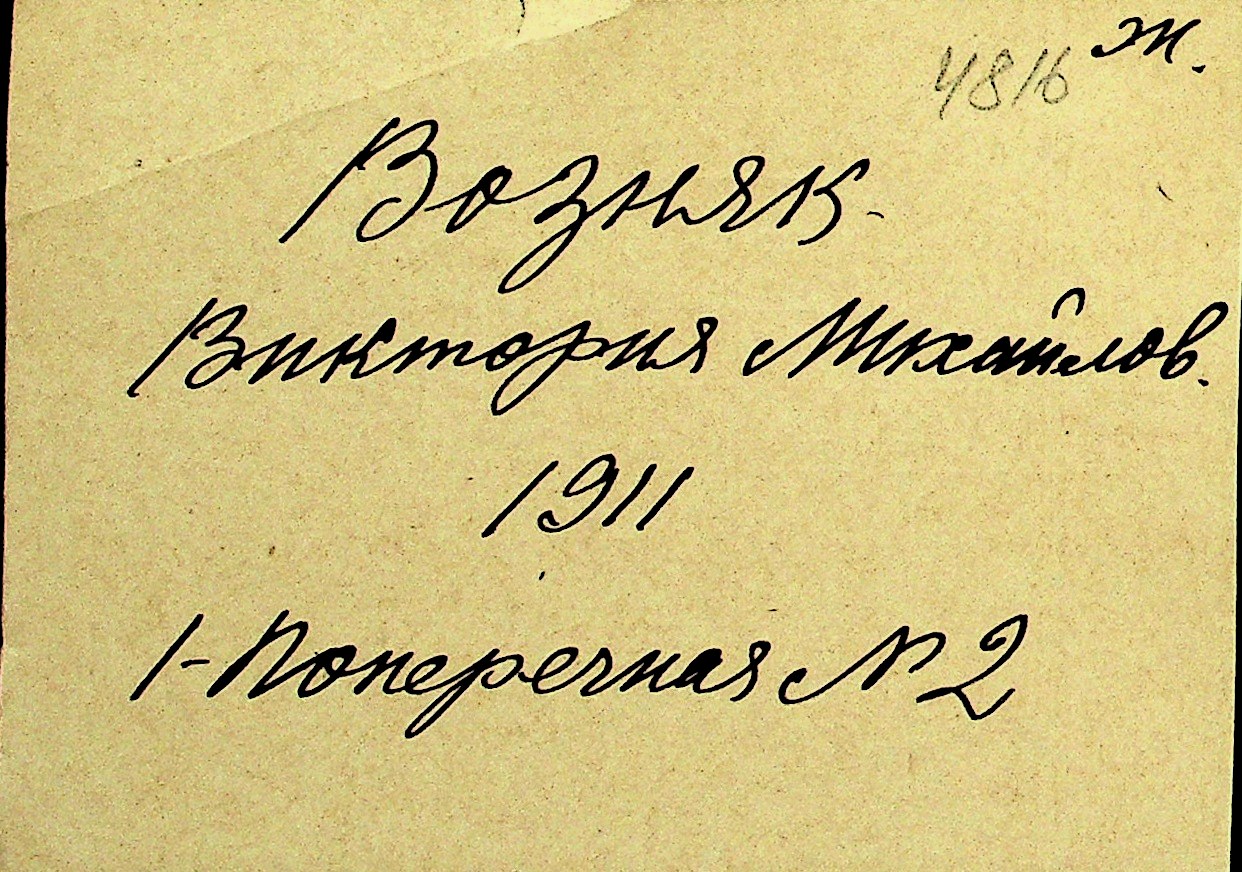 4816 ж.
Возняк
Виктория Михайлов.
1911
1-Поперечная N 2